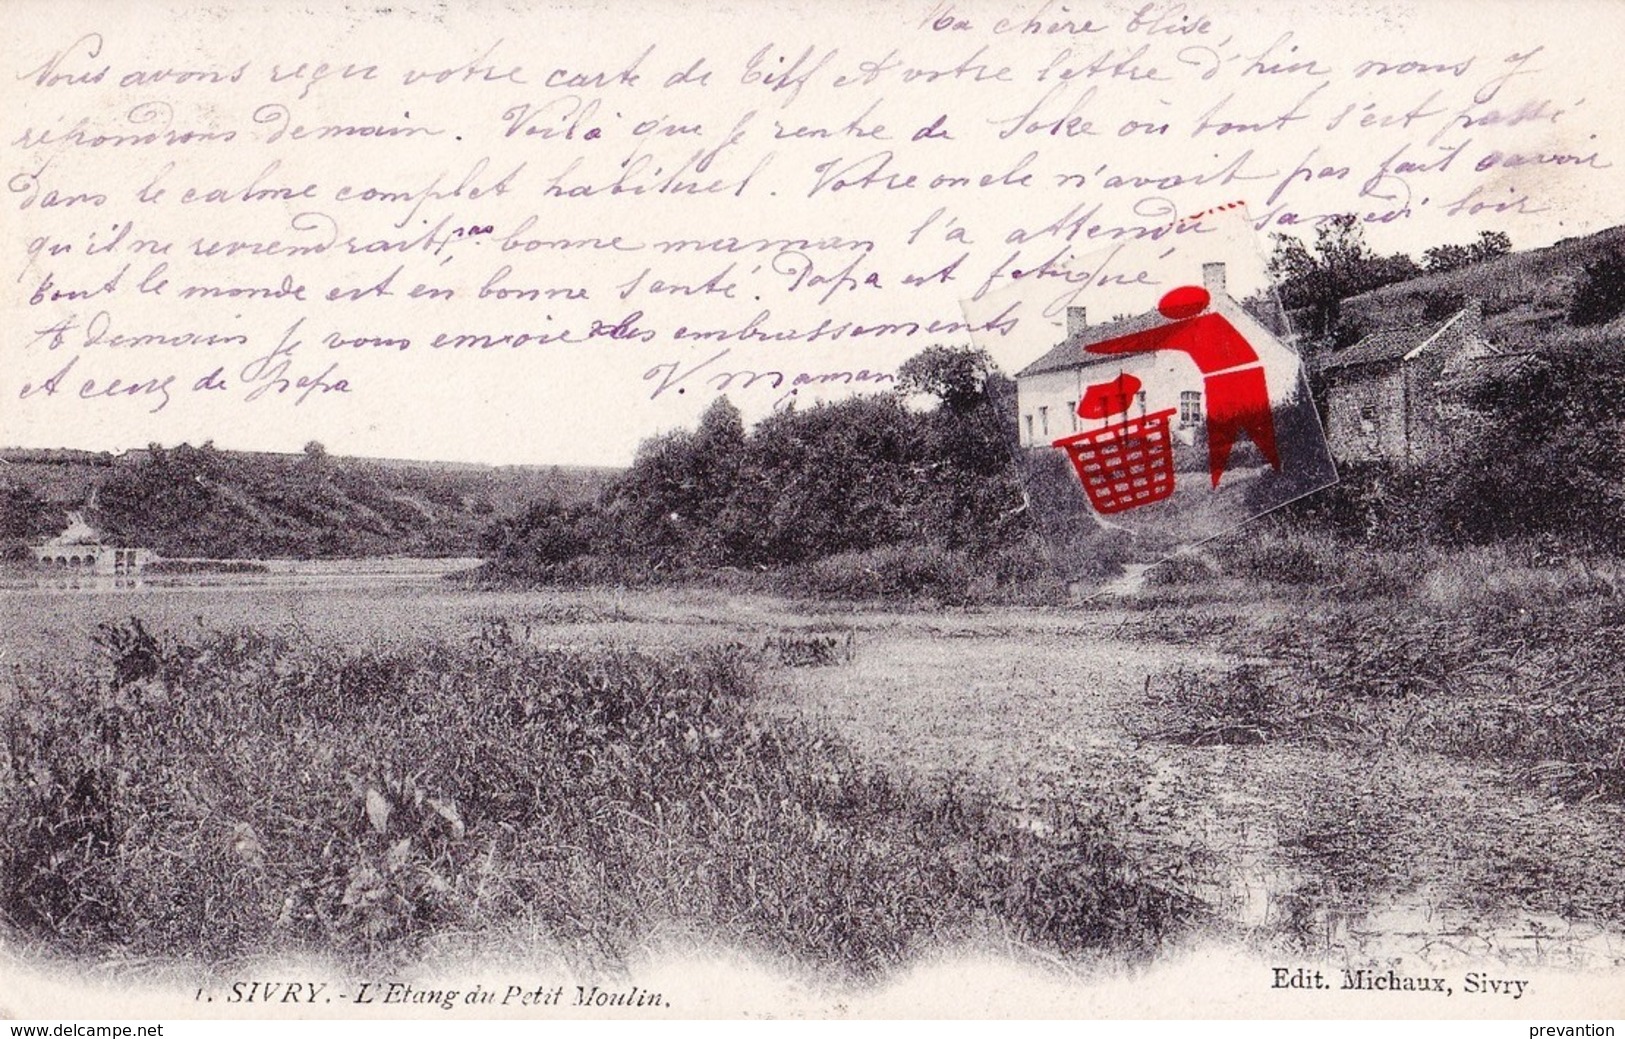 Ma chère Elise,
Nous avons reçu votre carte de Tilf et votre lettre d'hier nous y
répondrons demain. Voilà que je rentre de où tout s'est passé
dans le calme complet habituel. Votre oncle n'avait pas fait savoir
qu'il ne reviendrait pas. bonne maman l'a attendu samedi soir
tout le monde est en bonne santé. Papa est fatigué
A demain je vous envoie des embrassements
et ceux de papa V. Maman
1. SIVRY. - L'Etang du Petit Moulin.
Edit. Michaux, Sivry.
www.delcampe.net
prevantion